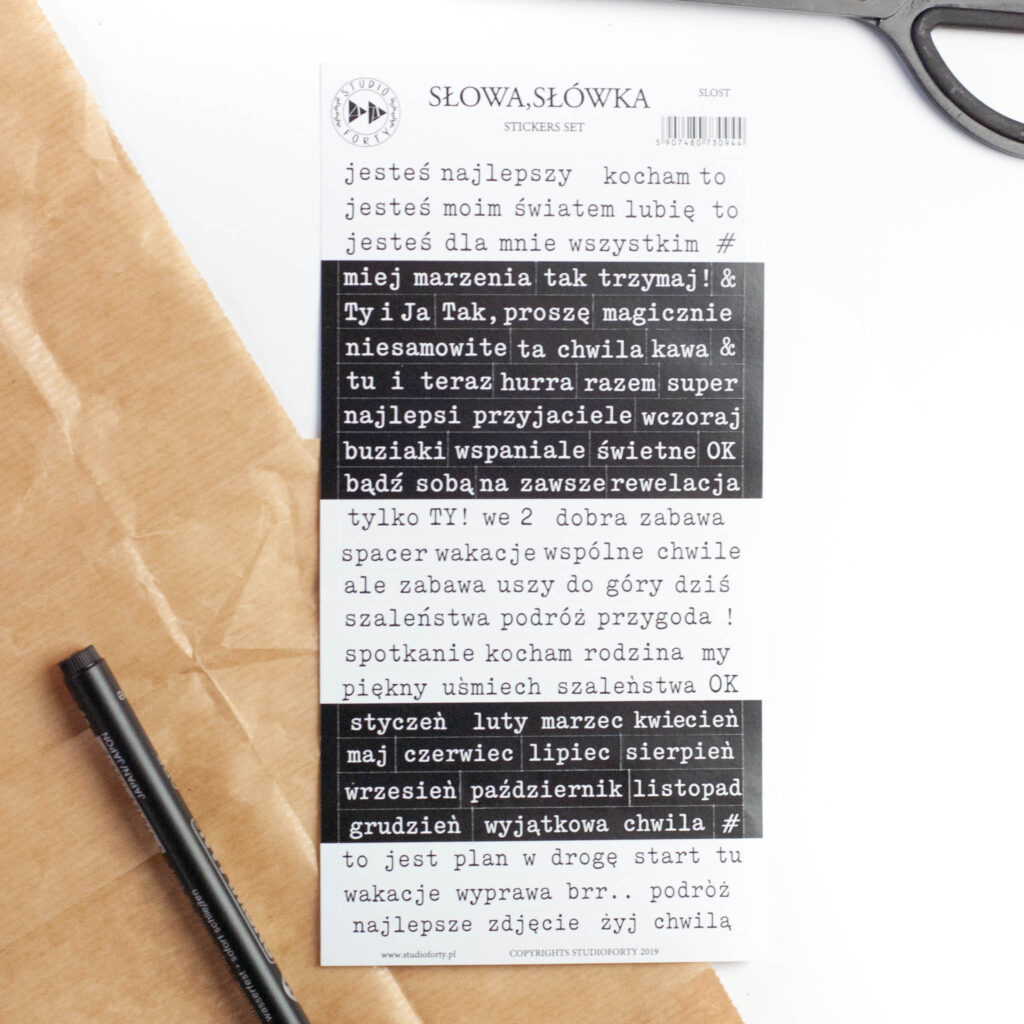 STUDIO FORTY
SŁOWA,SŁÓWKA
SLOST
STICKERS SET
5907480730944
jesteś najlepszy kocham to
jesteś moim światem lubię to
jesteś dla mnie wszystkim #
miej marzenia tak trzymaj! &
Ty i Ja Tak, proszę magicznie
niesamowite ta chwila kawa &
tu i teraz hurra razem super
najlepsi przyjaciele wczoraj
buziaki wspaniale świetne OK
bądź sobą na zawsze rewelacja
tylko TY! we 2 dobra zabawa
spacer wakacje wspólne chwile
ale zabawa uszy do góry dziś
szaleństwa podróż przygoda !
spotkanie kocham rodzina my
piękny uśmiech szaleństwa OK
styczeń luty marzec kwiecień
maj czerwiec lipiec sierpień
wrzesień październik listopad
grudzień wyjątkowa chwila #
to jest plan w drogę start tu
wakacje wyprawa brr.. podròż
najlepsze zdjęcie żyj chwilą
www.studioforty.pl COPYRIGHTS STUDIOFORTY 2019
JAPAN/JAPON
wasserfest • sofort schließen